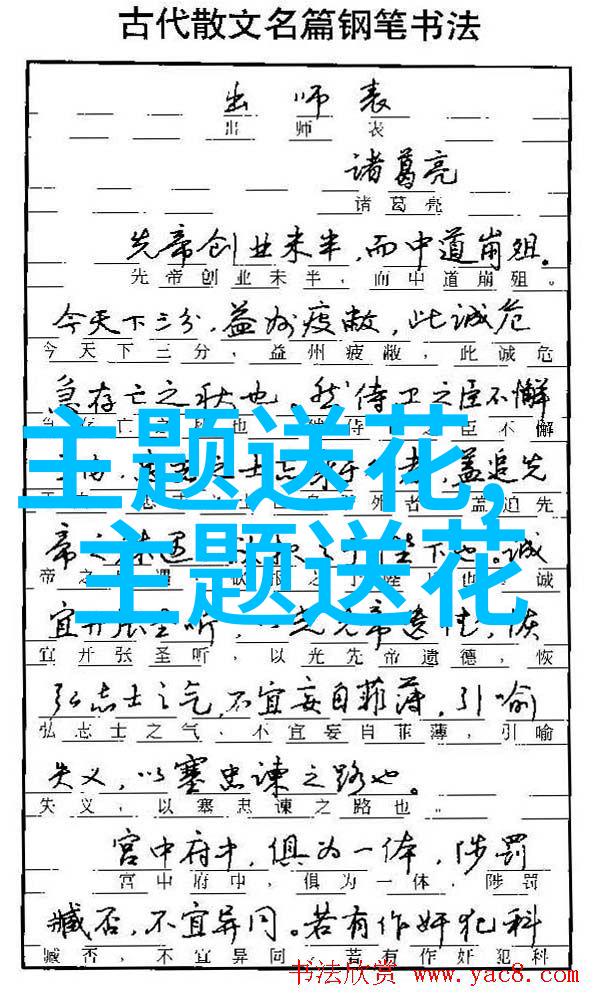 古代散文名篇钢笔书法
出师表
出师表
诸葛亮
诸葛亮
先帝创业未半,而中道崩殂。
先帝创业未半,而中道崩殂。
今天下三分,益州疲敝,此诚危
今天下三分,益州疲敝,此诚危
急存亡之秋也。然侍卫之臣不懈
存亡之 也 侍 之臣不懈
主题送花,
者,盖追先
盖追先
主题送花
帝之 遇 陛下也。诚
帝之 遇 之 陛 也 诚
宜开张圣听,以光先帝遗德,恢
宜开张圣听,以光先帝遗德,恢
弘志士之气,不宜妄自菲薄,引喻
弘志士之气,不宜妄自菲薄,引喻
失义,以塞忠谏之路也。
失义,以塞忠谏之路也。
宫中府中,俱为一体,陟罚
宫中府中,俱为一体,陟罚
臧否,不宜异同。若有作奸犯科
臧否,不宜异同。若有作奸犯科
书法欣赏 www.yac8.com